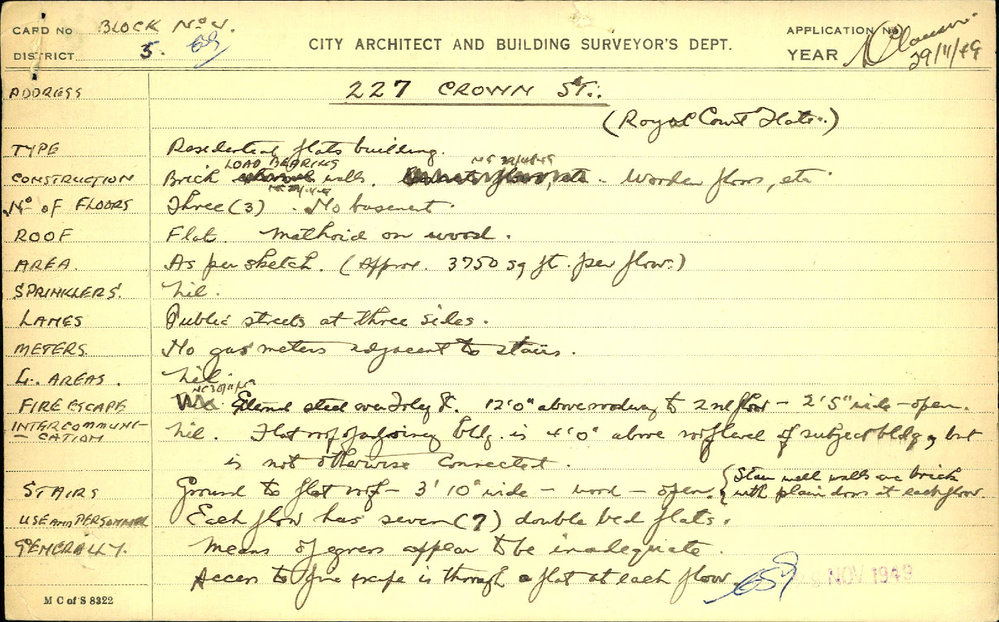 CARD NO BLOCK No 4.
DISTRICT 5. 69
CITY ARCHITECT AND BUILDING SURVEYOR'S DEPT.
APPLICATION NO
YEAR
29/11/49
ADDRESS 227 CROWN ST.
(Royal Court Flats.)
TYPE Residential flats building.
CONSTRUCTION Brick LOAD BEARING walls. Wooden floors, etc.
No OF FLOORS Three (3). No basement.
ROOF Flat. Malthoid on wood.
AREA. As per sketch. (Approx. 3750 sq ft. per floor.)
SPRINKLERS. Nil.
LANES Public streets at three sides.
METERS. No gas meters adjacent to stairs.
L. AREAS. Nil.
FIRE ESCAPE External steel over Foley St. 12'0" above roadway to 2nd floor - 2'5" wide - open.
INTERCOMMUNI-
-CATION Nil. Flat roof of adjoining bldg. is 4'0" above roof level of subject bldg, but
is not otherwise connected.
STAIRS Ground to flat roof - 3'10" wide - wood - open. {Stair well walls are brick
with plain doors at each floor
USE AND PERSONNEL Each floor has seven (7) double bed flats.
GENERALLY. Means of egress appear to be inadequate.
Access to fire escape is through a flat at each floor.
NOV 1949
M C of S 8322